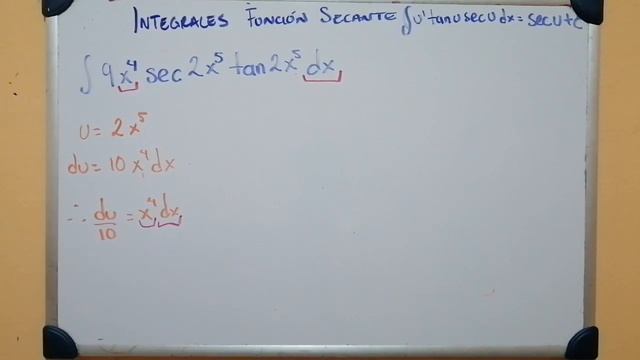 INTEGRALES FUNCIÓN SECANTE ∫u' tan u sec u dx = sec u + c
∫ 9x⁴ sec 2x⁵ tan 2x⁵ dx
u = 2x⁵
du = 10x⁴dx
∴ du/10 = x⁴dx